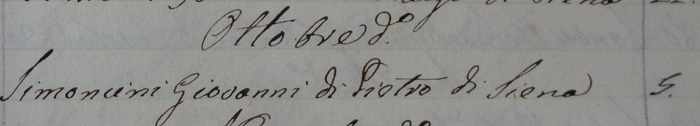 di Siena
Ottobre d.º
Simoncini Giovanni di Pietro di Siena 5.